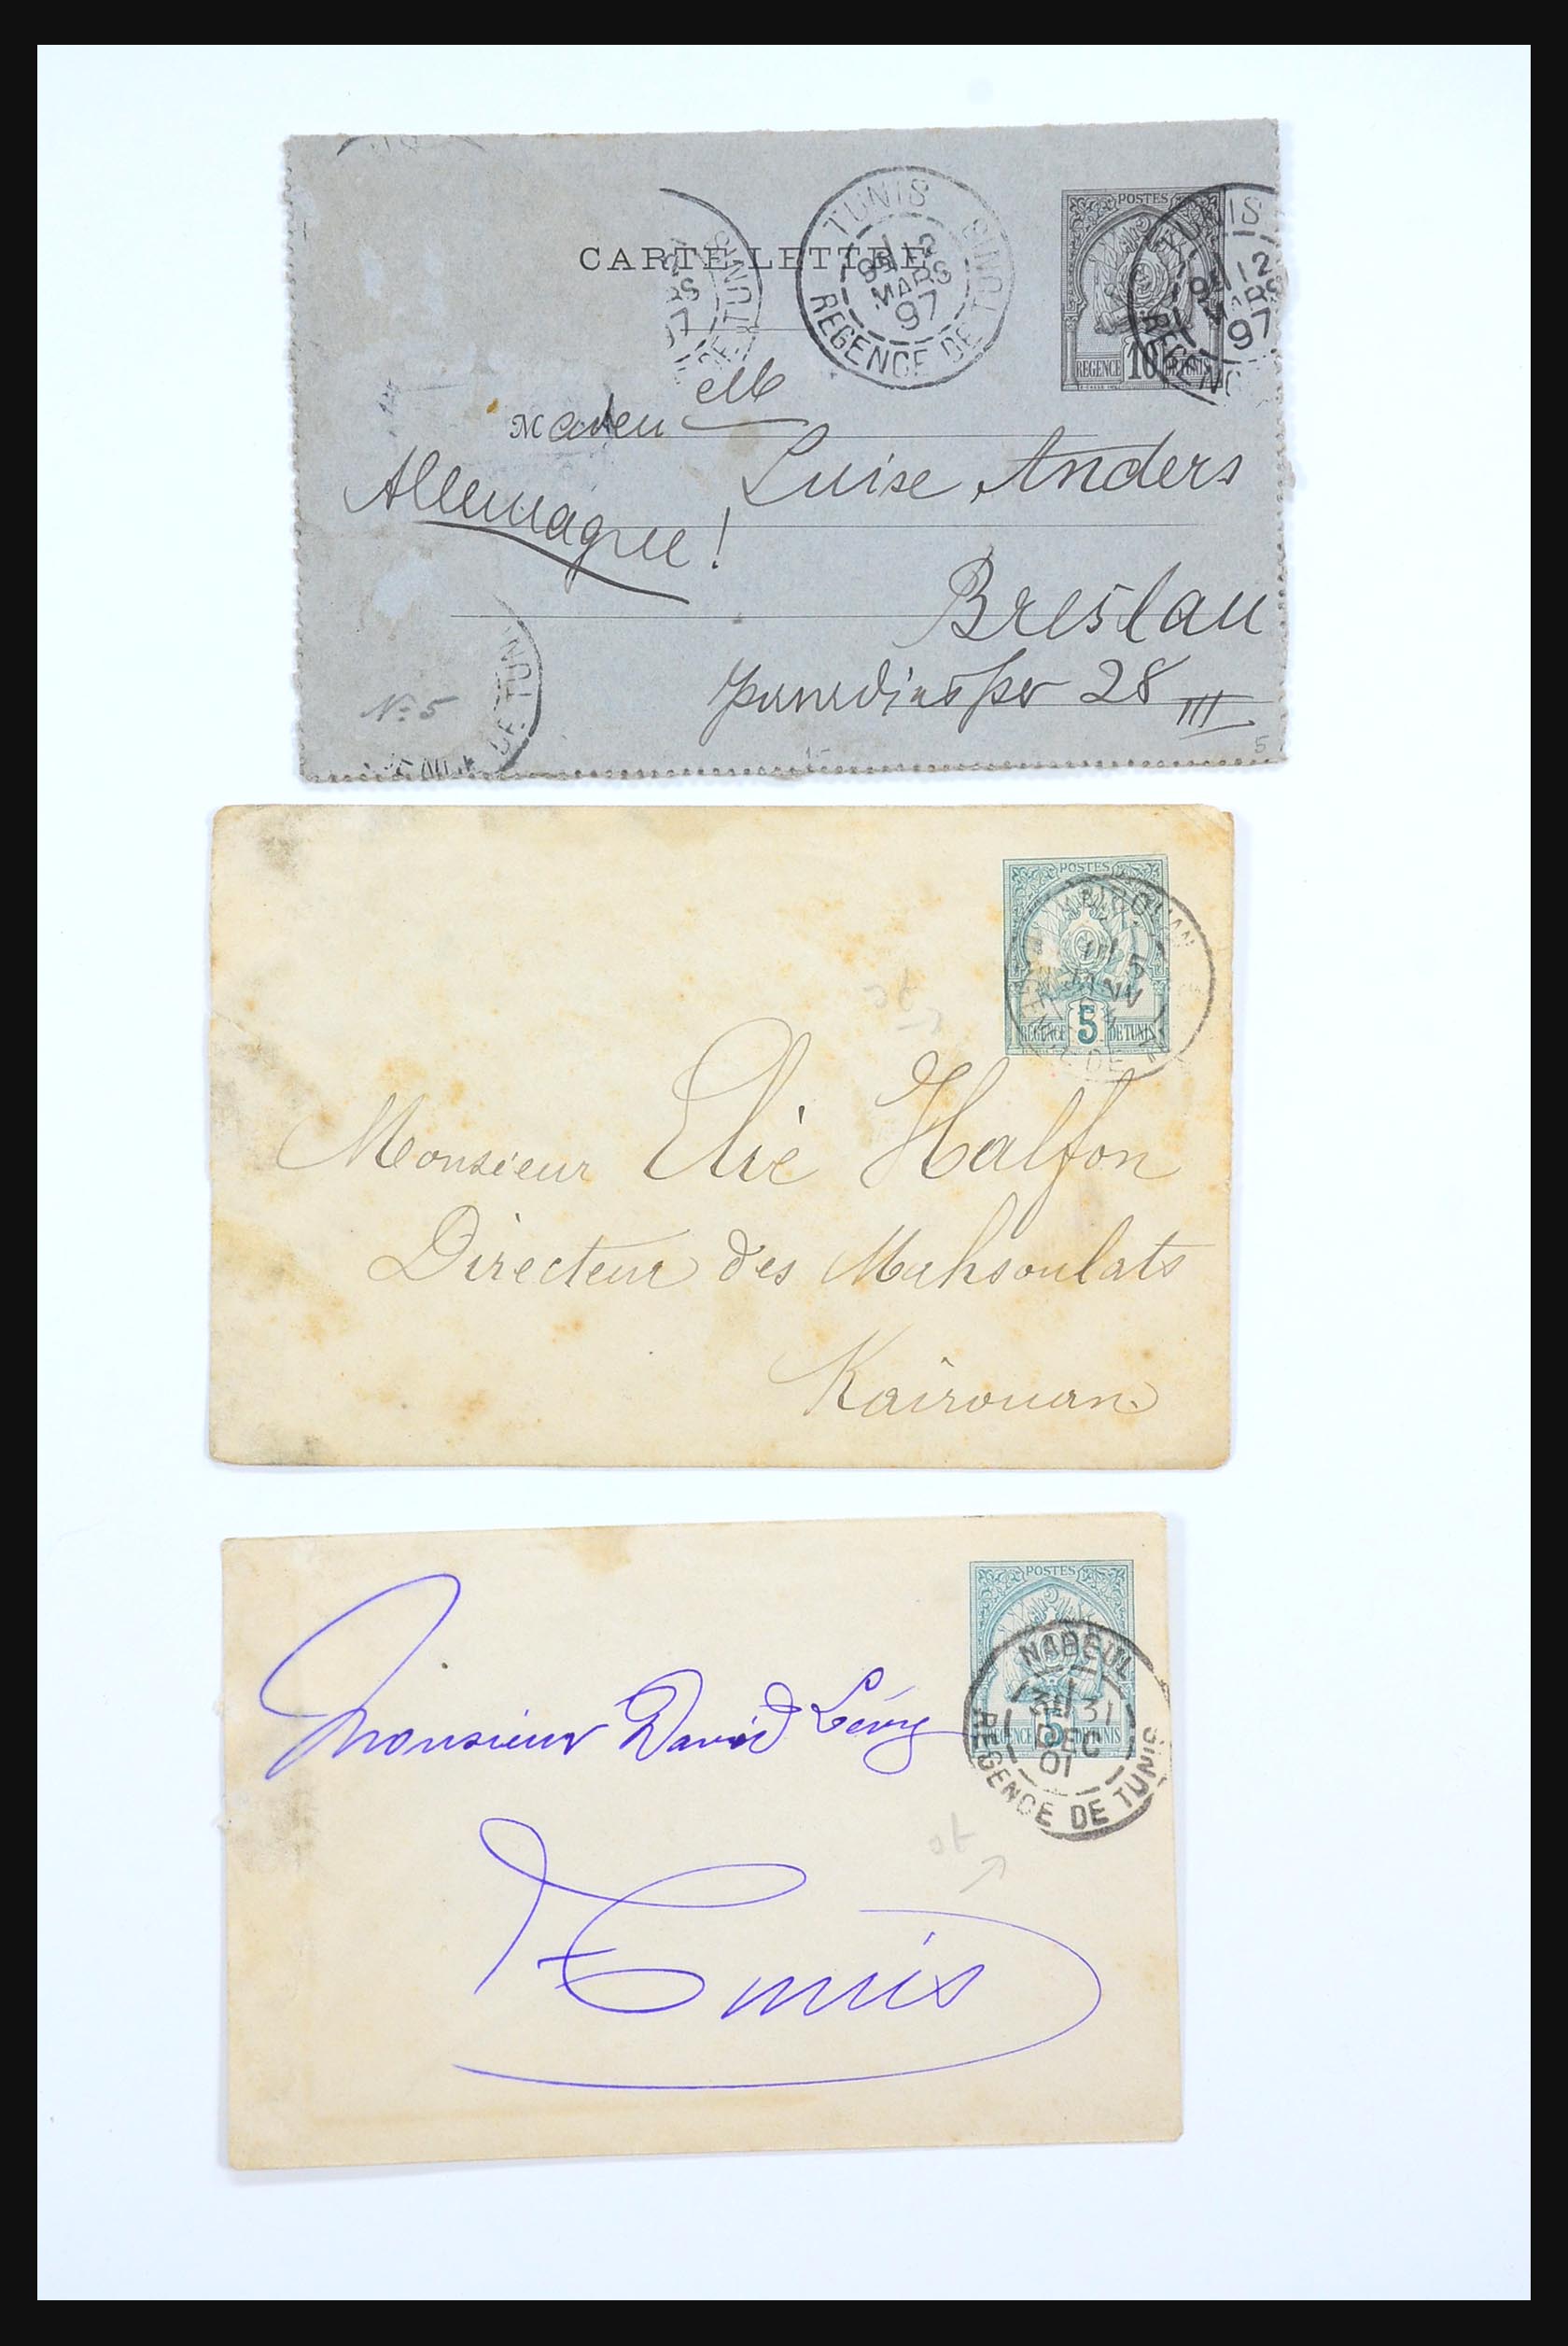 CARTE-LETTRE
TUNIS
MARS
97
REGENCE DE TUNIS
POSTES
REGENCE 10 DE TUNIS
12
MARS
97
elle
Luise Anders
Allemagne!
Breslau
28 III
No 5
5
POSTES
REGENCE 5 DE TUNIS
5
JANV
Monsieur Elie Halfon
Directeur des Mahsoulats
Kairouan
POSTES
REGENCE 5 DE TUNIS
NABEUL
31
DEC
01
REGENCE DE TUNIS
Monsieur David Lévy
Tunis